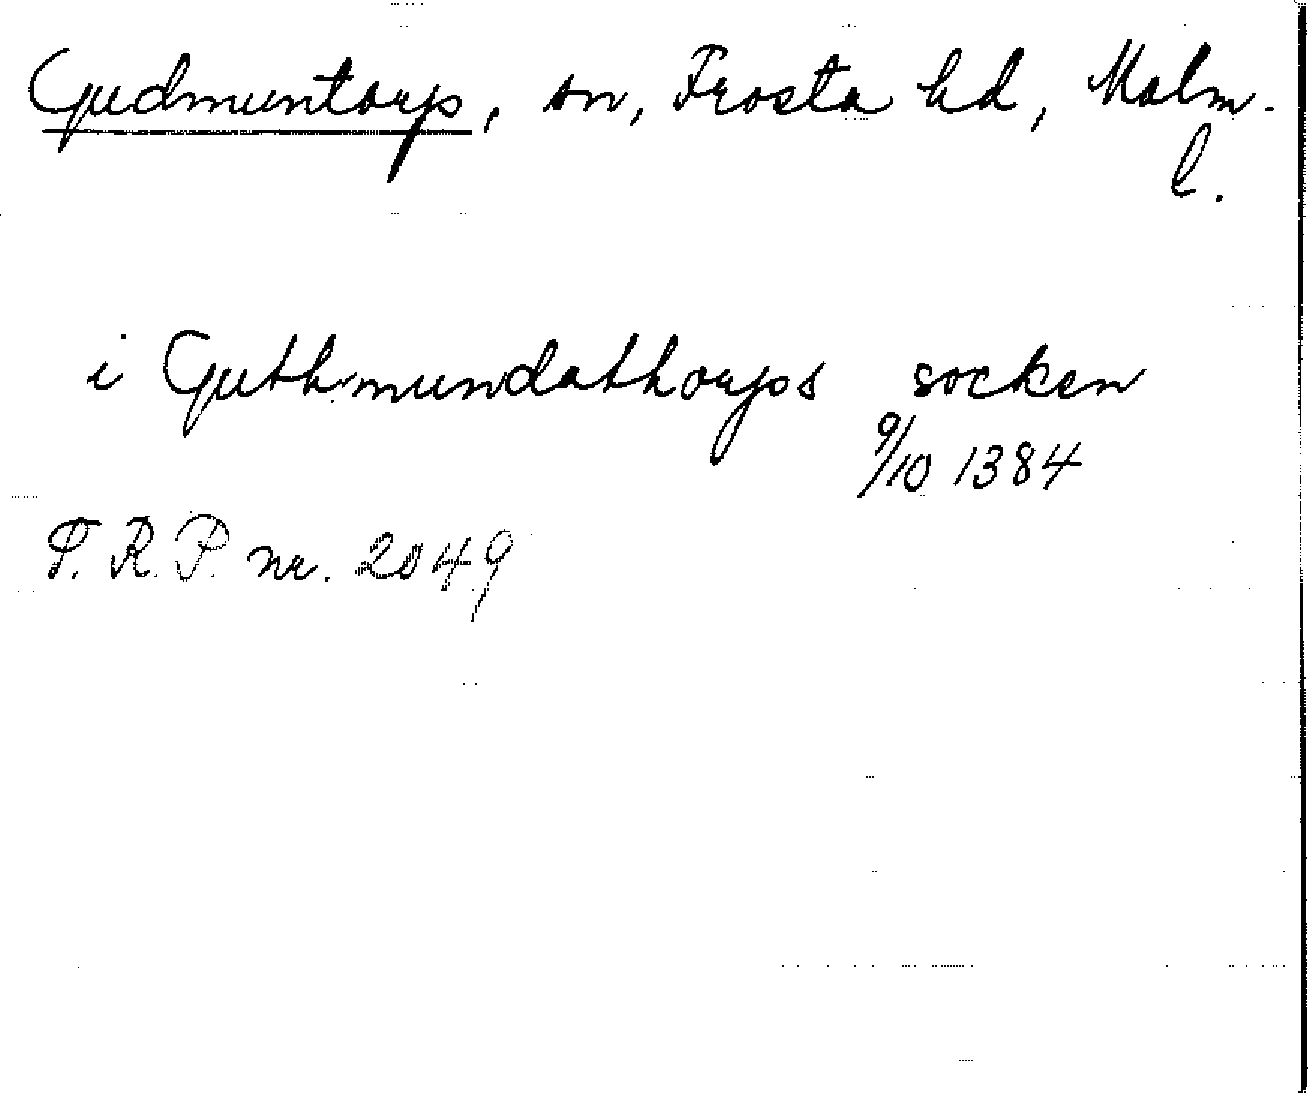 Gudmuntorp, sn, Frosta hd, Malm.
l.
i Guthmundathorps socken
9/10 1384
P.R.P. nr. 2049